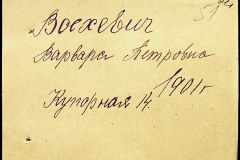 Восхевич
Варвара Петровна
1901 г
Купорная 14.